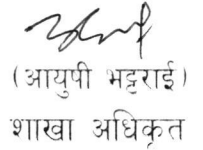 (आयुपी भट्टराई)
शाखा अधिकृत